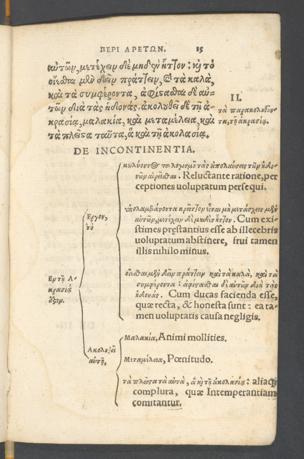 ΠΕΡΙ ΑΡΕΤΩΝ. 15
αὐτῶν, μετέχειν δὲ μηδὲν ἧττον: καὶ τὸ
οἴεσθαι μὲν δεῖν πράττειν, καὶ τὰ καλὰ,
καὶ τὰ συμφέροντα, ἀφίστασθαι δὲ αὐ-
τῶν διὰ τὰς ἡδονάς. ἀκολουθεῖ δὲ τῇ ἀ-
κρασίᾳ, μαλακία, καὶ μεταμέλεια, καὶ
τὰ πλεῖστα ταῦτα, ἃ καὶ τῇ ἀκολασίᾳ.
II.
τὰ παρακολουθοῦν-
τα, τῇ ἀκρασίᾳ.
DE INCONTINENTIA.
τὰς ἀπολαύσεις τῶν ἡδο-
νῶν αἱρεῖσθαι. Reluctante ratione, per
ceptiones voluptatum persequi.
ὑπολαμβάνοντα κρεῖττον εἶναι μὴ μετάσχειν μὲν
αὐτῶν, μετέχειν δὲ μηδὲν ἧττον. Cum exi-
stimes præstantius esse ab illecebris
voluptatum abstinere, frui tamen
illis nihilo minus.
Ἔργον,
τὸ
οἴεσθαι μὲν δεῖν πράττειν καὶ τὰ καλὰ, καὶ τὰ
συμφέροντα: ἀφίστασθαι δὲ αὐτῶν διὰ τὰς
ἡδονάς. Cum ducas facienda esse,
quæ recta, & honesta sunt: ea ta-
men voluptatis causa negligis.
Ἐστὶ Ἀ-
κρασίας
Μαλακία, Animi mollities.
Ἀκολουθεῖ
αὐτῇ,
Μεταμέλεια, Pœnitudo.
τὰ πλεῖστα ταῦτα, ἃ καὶ τῇ ἀκολασίᾳ: aliaque
complura, quæ Intemperantiam
comitantur.